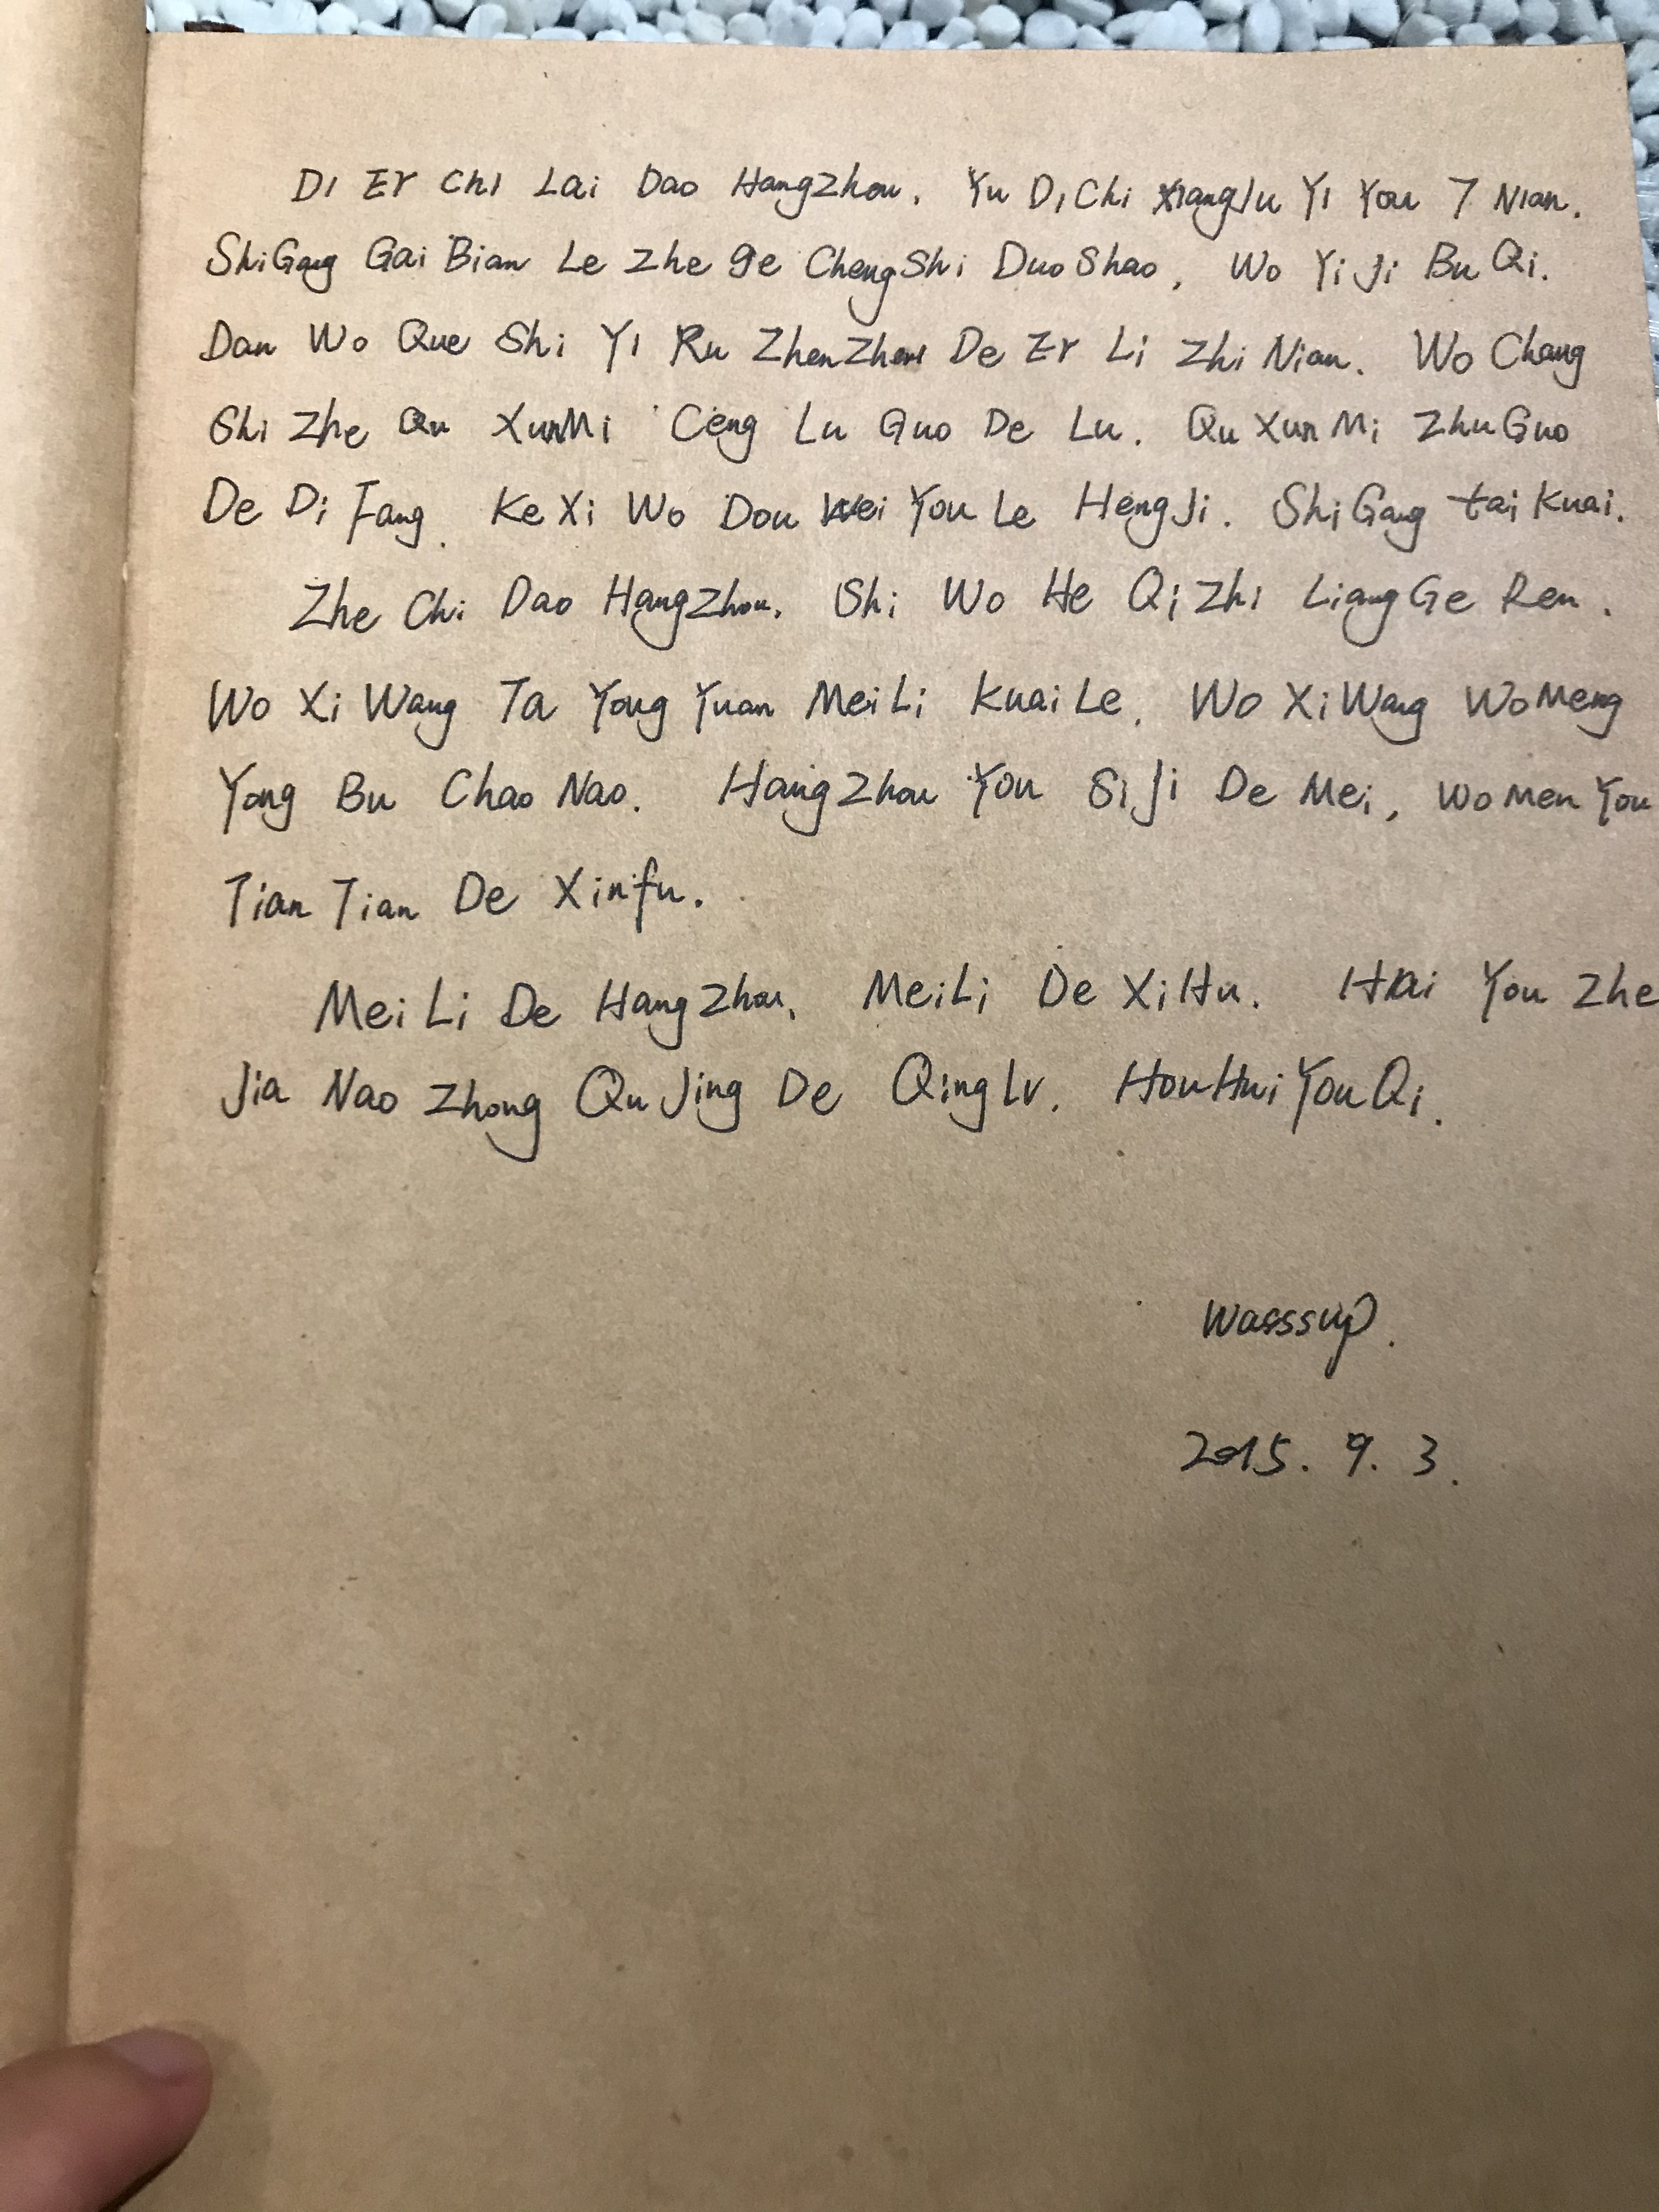 Di Er Chi Lai Dao HangZhou. Yu Di Chi XiangJu Yi You 7 Nian.
ShiGang Gai Bian Le Zhe ge ChengShi DuoShao, Wo Yi Ji Bu Qi.
Dan Wo Que Shi Yi Ru ZhenZhen De Er Li Zhi Nian. Wo Chang
Shi Zhe Qu XunMi Ceng Lu Guo De Lu. Qu XunMi ZhuGuo
De Di Fang. Ke Xi Wo Dou Wei You Le HengJi. ShiGang tai Kuai.
Zhe Chi Dao HangZhou. Shi Wo He QiZhi LiangGe Ren.
Wo Xi Wang Ta Yong Yuan MeiLi KuaiLe. Wo XiWang WoMeng
Yong Bu Chao Nao. HangZhou You SiJi De Mei, WoMen You
Tian Tian De Xinfu.
MeiLi De HangZhou. MeiLi De XiHu. Hai You Zhe
Jia Nao Zhong QuJing De QingLv. HouHuiYouQi.
Wasssup.
2015. 9. 3.